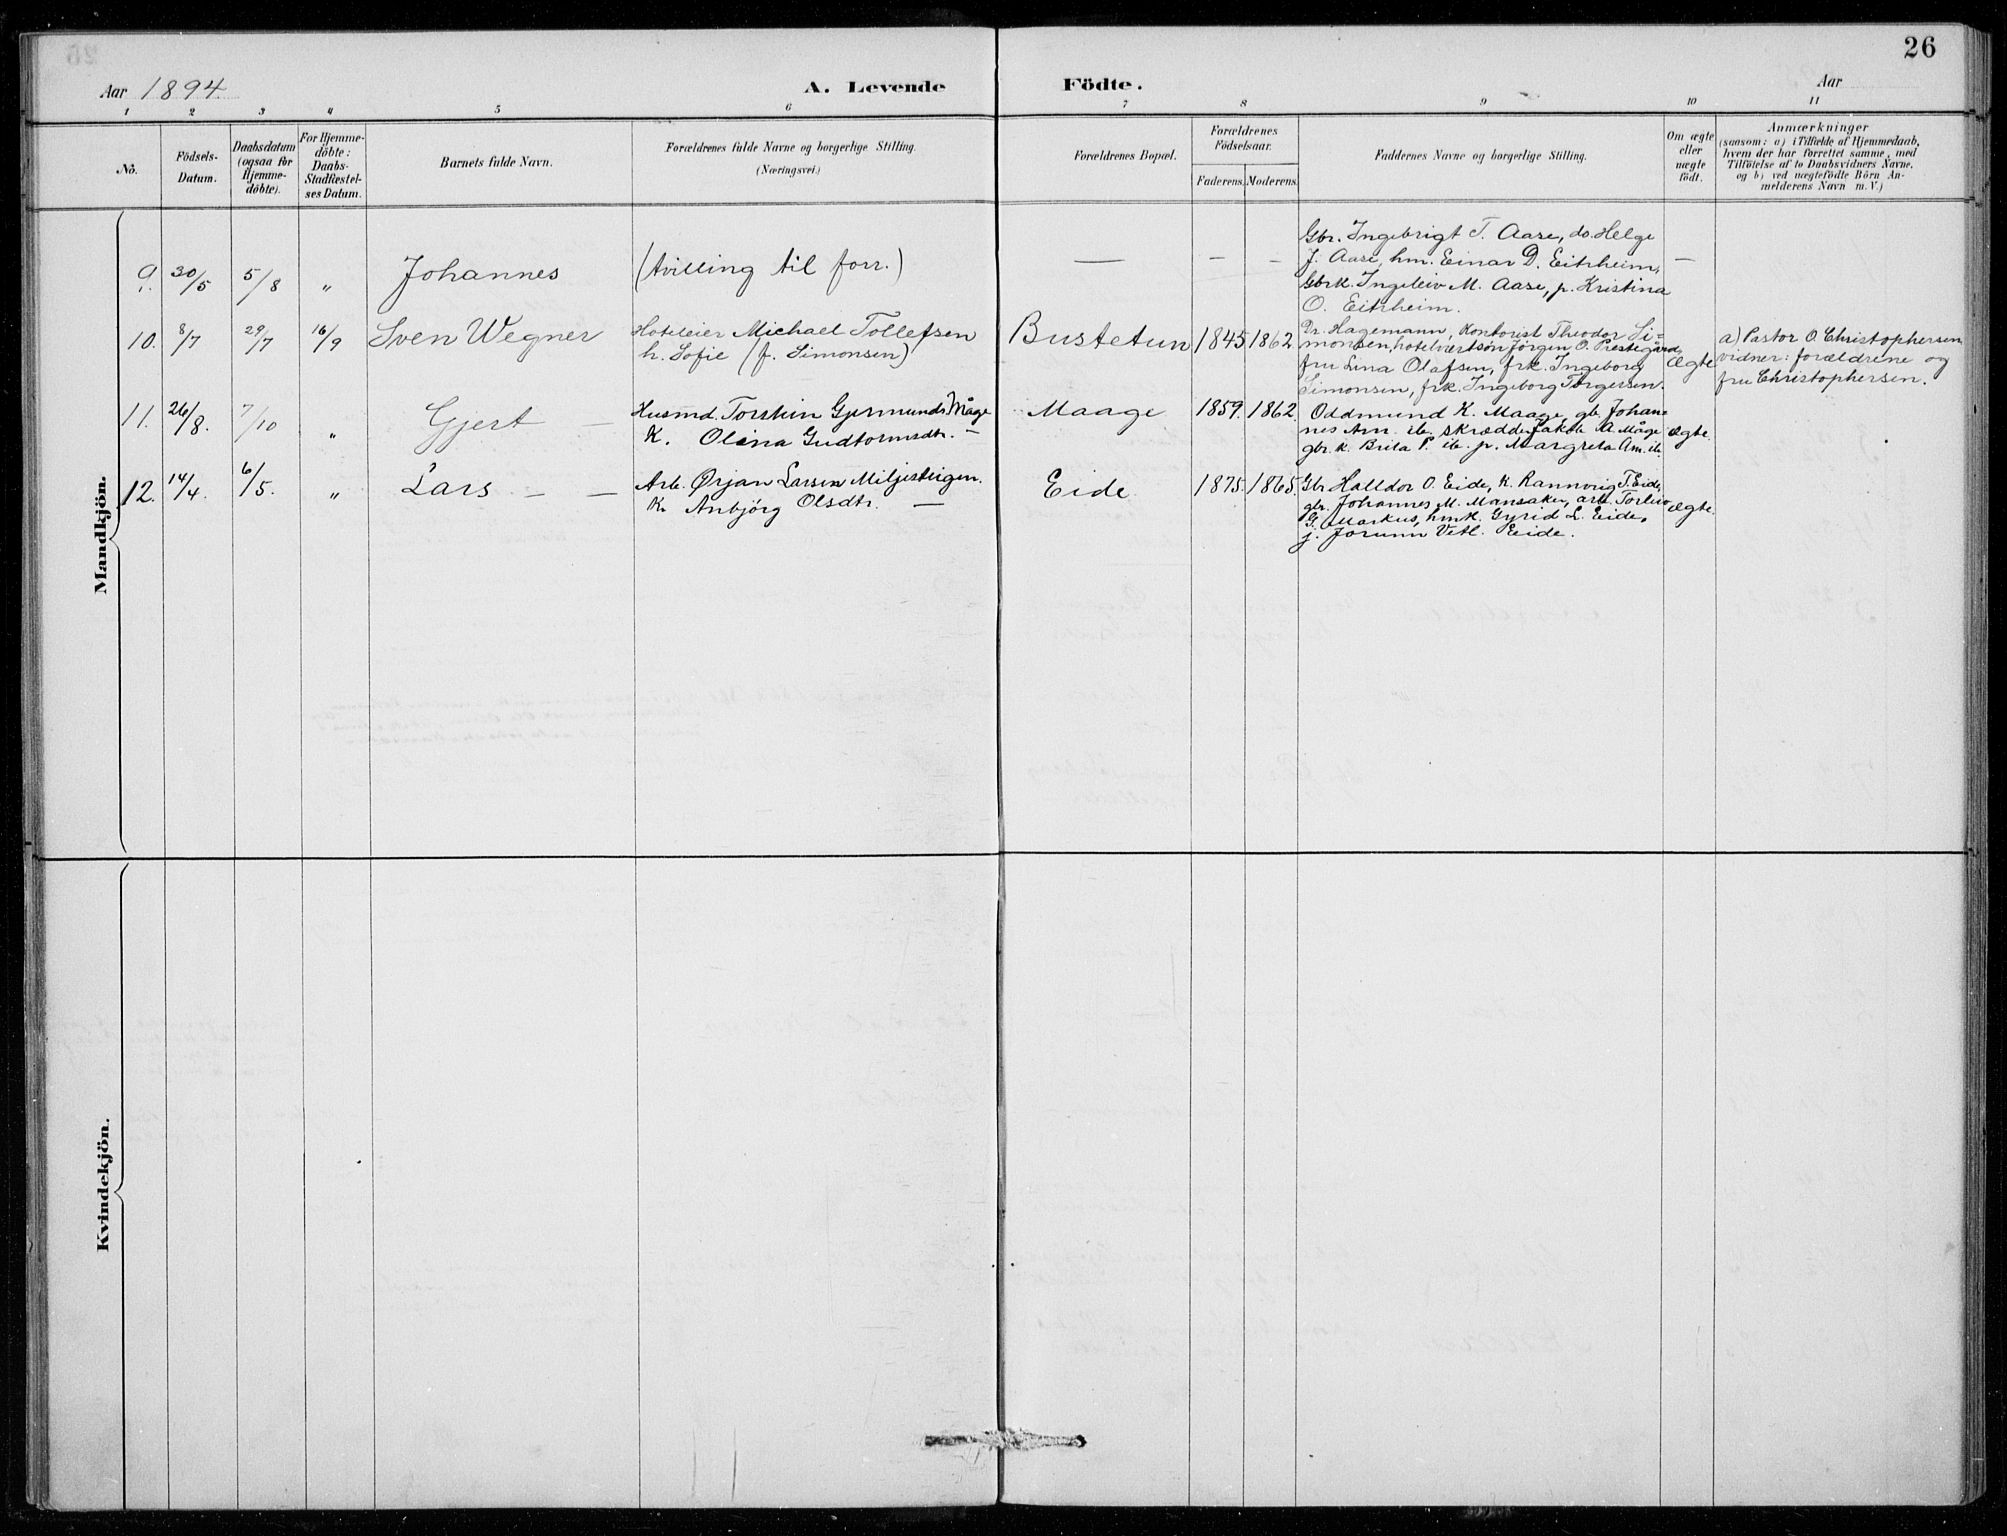 26
Aar 1894.
A. Levende Födte.
Aar
1 2 3 4 5 6 7 8 9 10 11
No.
Födsels-
Datum.
Daabsdatum
(ogsaa for
Hjemme-
döbte).
For Hjemme-
döbte:
Daabs-
Stadfæstel-
ses Datum.
Barnets fulde Navn.
Forældrenes fulde Navne og borgerlige Stilling.
(Næringsvei.)
Forældrenes Bopæl.
Forældrenes
Födselsaar.
Faderens. Moderens.
Faddernes Navne og borgerlige Stilling.
Om ægte
eller
uægte
födt.
Anmærkninger
(saasom: a) i Tilfælde af Hjemmedaab,
hvem der har forrettet samme, med
Tilföielse af to Daabsvidners Navne,
og b) ved uægtefödte Börn An-
melderens Navn m. V.)
Mandkjön.
9. 30/5 5/8 " Johannes (tvilling til forr.) — — — —
Gbr. Ingebrigt T. Aase, do. Helge
J. Aase, hm. Einar D. Eitrheim,
Gbrk. Ingeleiv M. Aase, p. Kristina
O. Eitrheim.
10. 8/7 29/7 16/9 Sven Wegner
Hoteleier Michael Tollefsen
h. Sofie (f. Simonsen)
Bustetun 1845 1862
Dr. Hagemann, Kontorist Theodor Si=
monsen, hotelværtsøn Jørgen O. Prestegård,
fru Lina Olafsen, frk. Ingeborg
Simonsen, frk. Ingeborg Torgersen.
Ægte
a) Pastor O. Christophersen
vidner: forældrene og
fru Christophersen.
11. 26/8. 7/10 " Gjert —
Husmd. Torstein Gjermunds. Måge
K. Olina Gudtormsdtr. —
Maage 1859. 1862
Oddmund K. Maage, gb. Johan=
nes Am. ib. skrædd. Jakob A. Måge
gbr. k. Brita P. ib. p. Margreta Am. ib.
Ægte.
12. 14/4. 6/5. " Lars — —
Arb. Ørjan Larsen Miljesteigen.
K. Anbjörg Olsdtr. —
Eide 1875. 1865.
Gbr Halldor O. Eide, K. Rannveig T. Eide,
gbr. Johannes M. Mansaker, arb. Torleiv
G. Markus, hmk. Gyrid L. Eide,
j. Jorunn Vetl. Eide.
Ægte.
Kvindekjön.